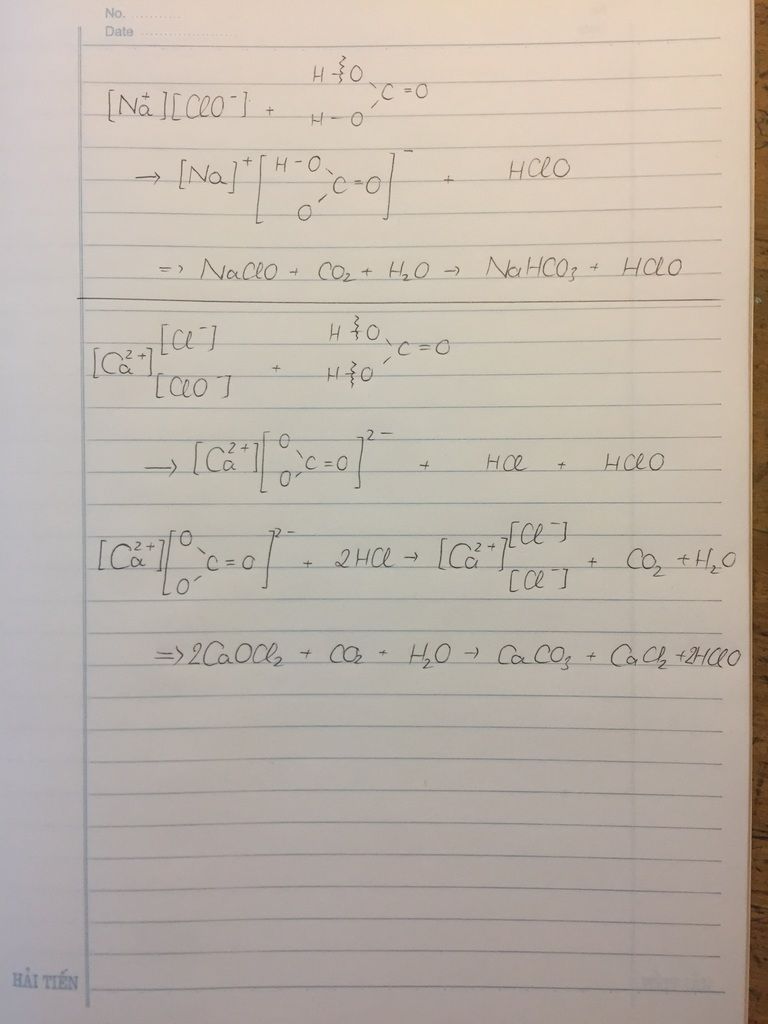 No. ...........
Date ......................
[Na⁺][ClO⁻] + H-O H-O C=O
→ [Na]⁺ [H-O O C=O]⁻ + HClO
=> NaClO + CO₂ + H₂O → NaHCO₃ + HClO
[Ca²⁺] [Cl⁻] [ClO⁻] + H-O H-O C=O
→ [Ca²⁺] [O O C=O]²⁻ + HCl + HClO
[Ca²⁺] [O O C=O]²⁻ + 2HCl → [Ca²⁺] [Cl⁻] [Cl⁻] + CO₂ + H₂O
=> 2CaOCl₂ + CO₂ + H₂O → CaCO₃ + CaCl₂ + 2HClO
HẢI TIẾN